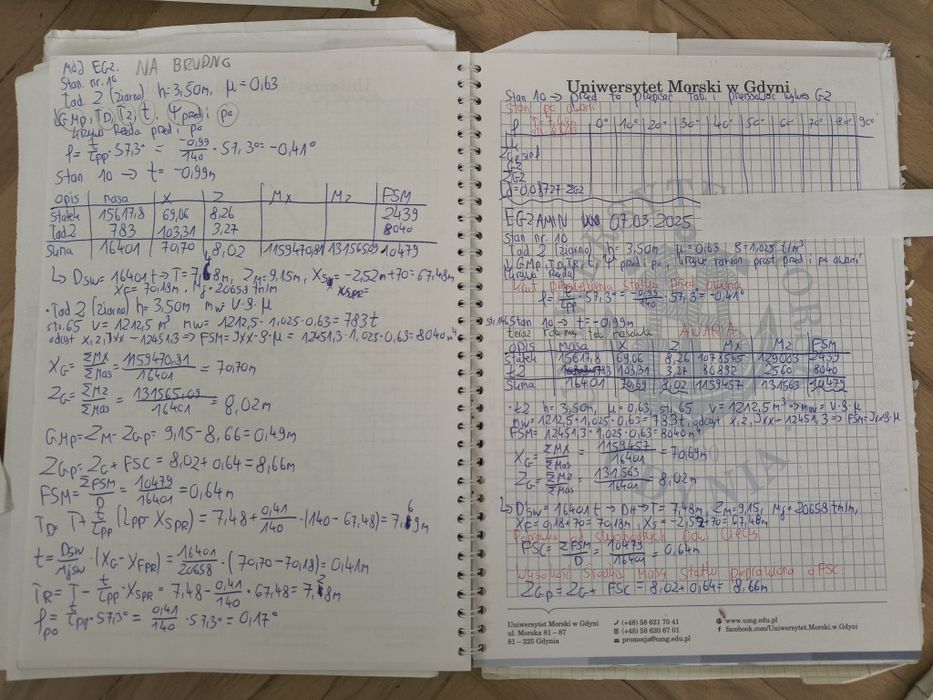 Mój EG2. NA BRUDNO
Stan. nr. 10
Ład. 2 (ziarno) h=3,50m, μ=0,63
GMp, TD, TR, t, Ψ przed i po
Krzywa Reeda przed i po
φ= t/Lpp · 57,3° = -0,99/140 · 57,3° = -0,41°
Stan 10 → t = -0,99m
opis | masa | X | Z | Mx | Mz | FSM
Statek | 15617,8 | 69,06 | 8,26 | 2439
Ład.2 | 783 | 103,31 | 3,27 | 8040
Suma | 16401 | 70,70 | 8,02 | 1159470,81 | 131565,09 | 10479
↳ Dsw = 16401t → T = 7,48m, ZM = 9,15m, XSw = -2,52m+70 = 67,48m
XF = 70,18m, Mj = 20658 tm/m XSPR=
· Ład 2 (ziarno) h= 3,50m mw V·ρ·μ
str.65 v = 1212,5 m³ mw = 1212,5 · 1,025·0,63 = 783t
odczyt x,z,Jxx → 12451,3 → FSM = Jxx·ρ·μ = 12451,3·1,025·0,63 = 8040m⁴
XG = ΣMX/ΣMas = 1159470,81/16401 = 70,70m
ZG = ΣMZ/ΣMas = 131565,09/16401 = 8,02m
GMp = ZM - ZGp = 9,15 - 8,66 = 0,49m
ZGp = ZG + FSC = 8,02 + 0,64 = 8,66m
FSM = ΣFSM/D = 10479/16401 = 0,64m
TD = T + t/Lpp (Lpp - XSPR) = 7,48 + 0,41/140 · (140 - 67,48) = 7,69m
t = Dsw/Mjsw · (XG - XFPR) = 16401/20658 · (70,70 - 70,18) = 0,41m
TR = T - t/Lpp · XSPR = 7,48 - 0,41/140 · 67,48 = 7,28m
φpo = t/Lpp · 57,3° = 0,41/140 · 57,3° = 0,17°
Uniwersytet Morski w Gdyni
Stan 10 → przed to przepisać tab. i
Stan po awarii
φ | T=7,48m | 0° | 10° | 20° | 30° | 40° | 50° | 60° | 70° | 80° | 90°
Ld = 0,01·ZG2
EGZAMIN 07.03.2025
Stan nr. 10
Ład 2 (ziarno) h= 3,50m μ= 0,63 ρ=1,025 t/m³
GMp, TD, TR, t, Ψ przed i po,
Krzywa Reeda
Kąt przegłębienia statku przed awarią
φ= t/Lpp · 57,3° = -0,99/140 · 57,3° = -0,41°
str.146 Stan 10 → t = -0,99m
AWARIA
OPIS | Masa | X | Z | MX | MZ | FSM
Statek | 15617,8 | 69,06 | 8,26 | 1078565 | 129003 | 2439
Ł2 | 783 | 103,31 | 3,27 | 80892 | 2560 | 8040
Suma | 16401 | 70,69 | 8,02 | 1159457 | 131563 | 10479
· Ł2 h= 3,50m, μ= 0,63, str. 65 v = 1212,5 m³ → mw = V·ρ·μ
mw = 1212,5 · 1,025 · 0,63 = 783t, odczyt x,z,Jxx → 12451,3 → FSM = Jxx·ρ·μ
FSM = 12451,3 · 1,025 · 0,63 = 8040m⁴
XG = ΣMX/ΣMas = 1159457/16401 = 70,69m
ZG = ΣMZ/ΣMas = 131563/16401 = 8,02m
↳ Dsw = 16401t → DH → T= 7,48m, ZM = 9,15, Mj = 20658 tm/m,
XF = 0,18+70 = 70,18m, XS = -2,52+70 = 67,48m
Poprawka od swobodnych pow. cieczy
FSC = ΣFSM/D = 10479/16401 = 0,64m
Wysokość Środka Masy Statku poprawiona o FSC:
ZGp = ZG + FSC = 8,02 + 0,64 = 8,66m
Uniwersytet Morski w Gdyni
ul. Morska 81 – 87
81 – 225 Gdynia
(+48) 58 621 70 41
(+48) 58 620 67 01
promocja@umg.edu.pl
www.umg.edu.pl
facebook.com/Uniwersytet.Morski.w.Gdyni